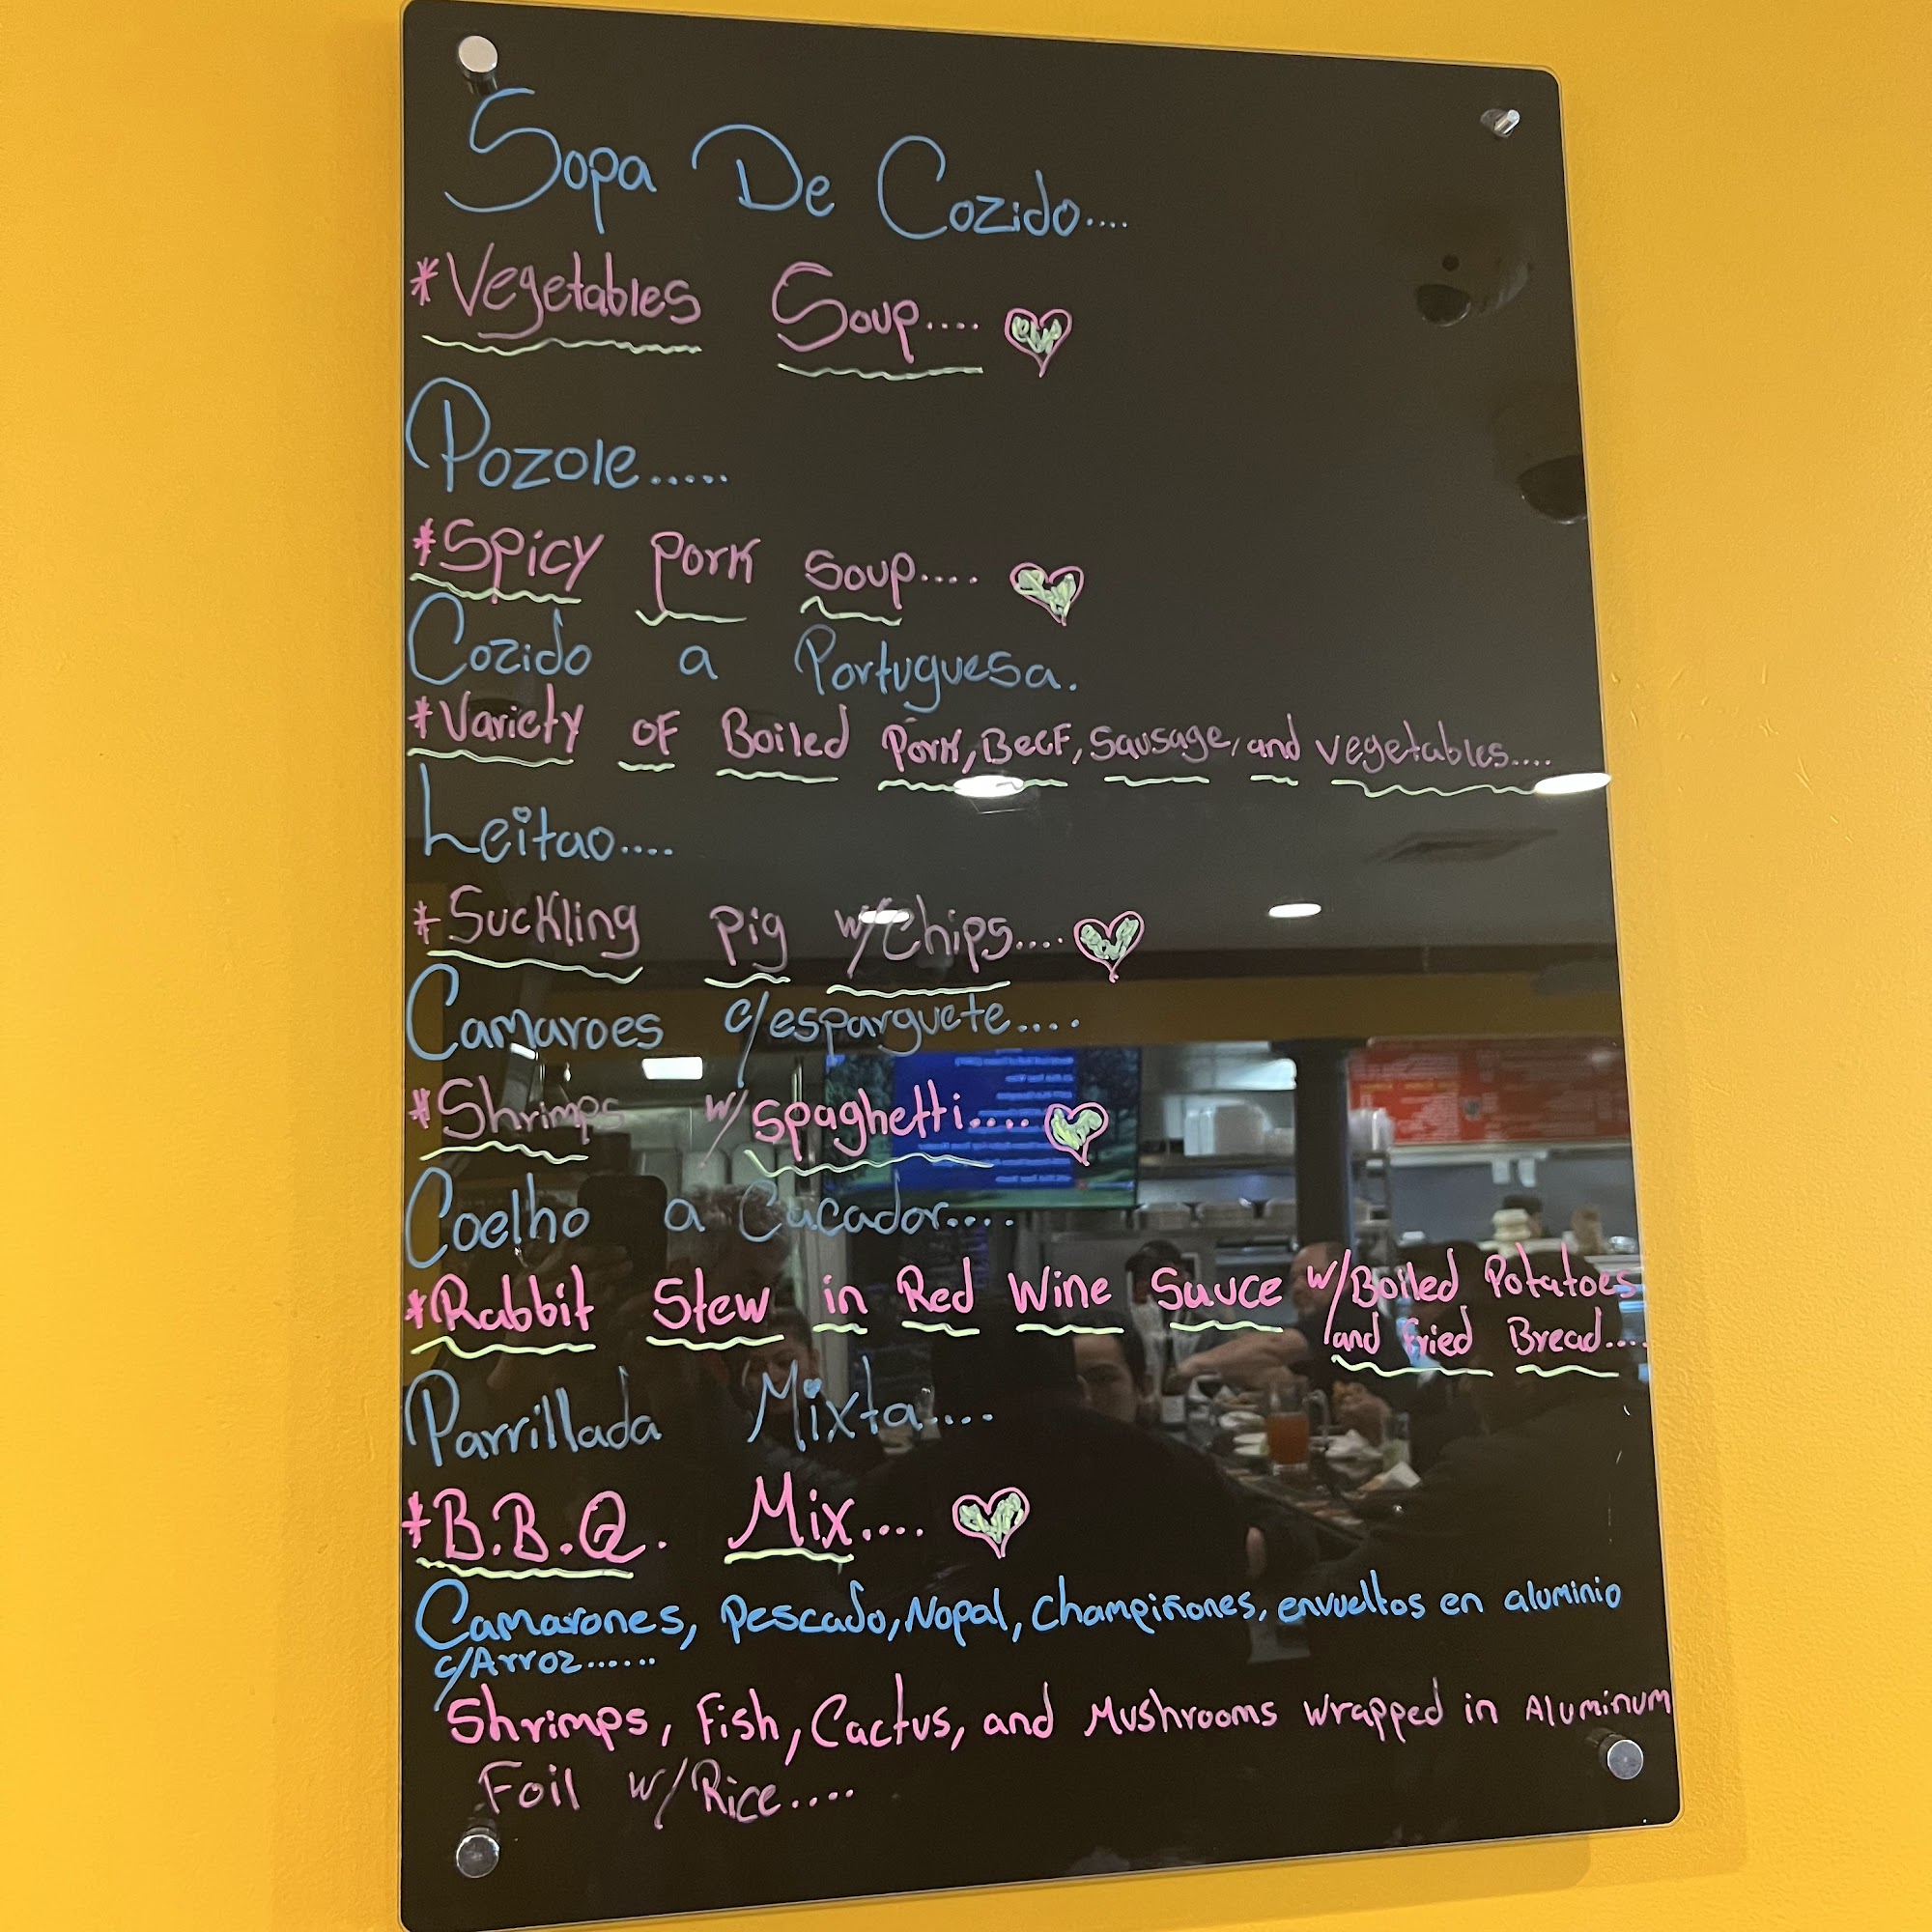 Sopa De Cozido....
*Vegetables Soup....
Pozole......
*Spicy Pork Soup....
Cozido a Portuguesa.
*Variety of Boiled Pork, Beef, Sausage, and vegetables....
Leitao....
*Suckling Pig w/Chips....
Camaroes c/esparguete....
*Shrimps w/spaghetti....
Coelho a Cucador....
*Rabbit Stew in Red Wine Sauce w/Boiled Potatoes
and fried Bread....
Parrillada Mixta....
*B.B.Q. Mix....
Camarones, Pescado, Nopal, Champiñones, envueltos en aluminio
c/Arroz......
Shrimps, Fish, Cactus, and Mushrooms wrapped in Aluminum
Foil w/Rice....